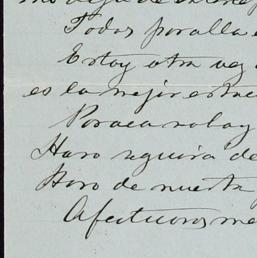 Todos por alla e
Estoy otra vez
es la mejor estac
Por aca no hay
Haro seguira de
Haro de nuestra
Afectuosos me